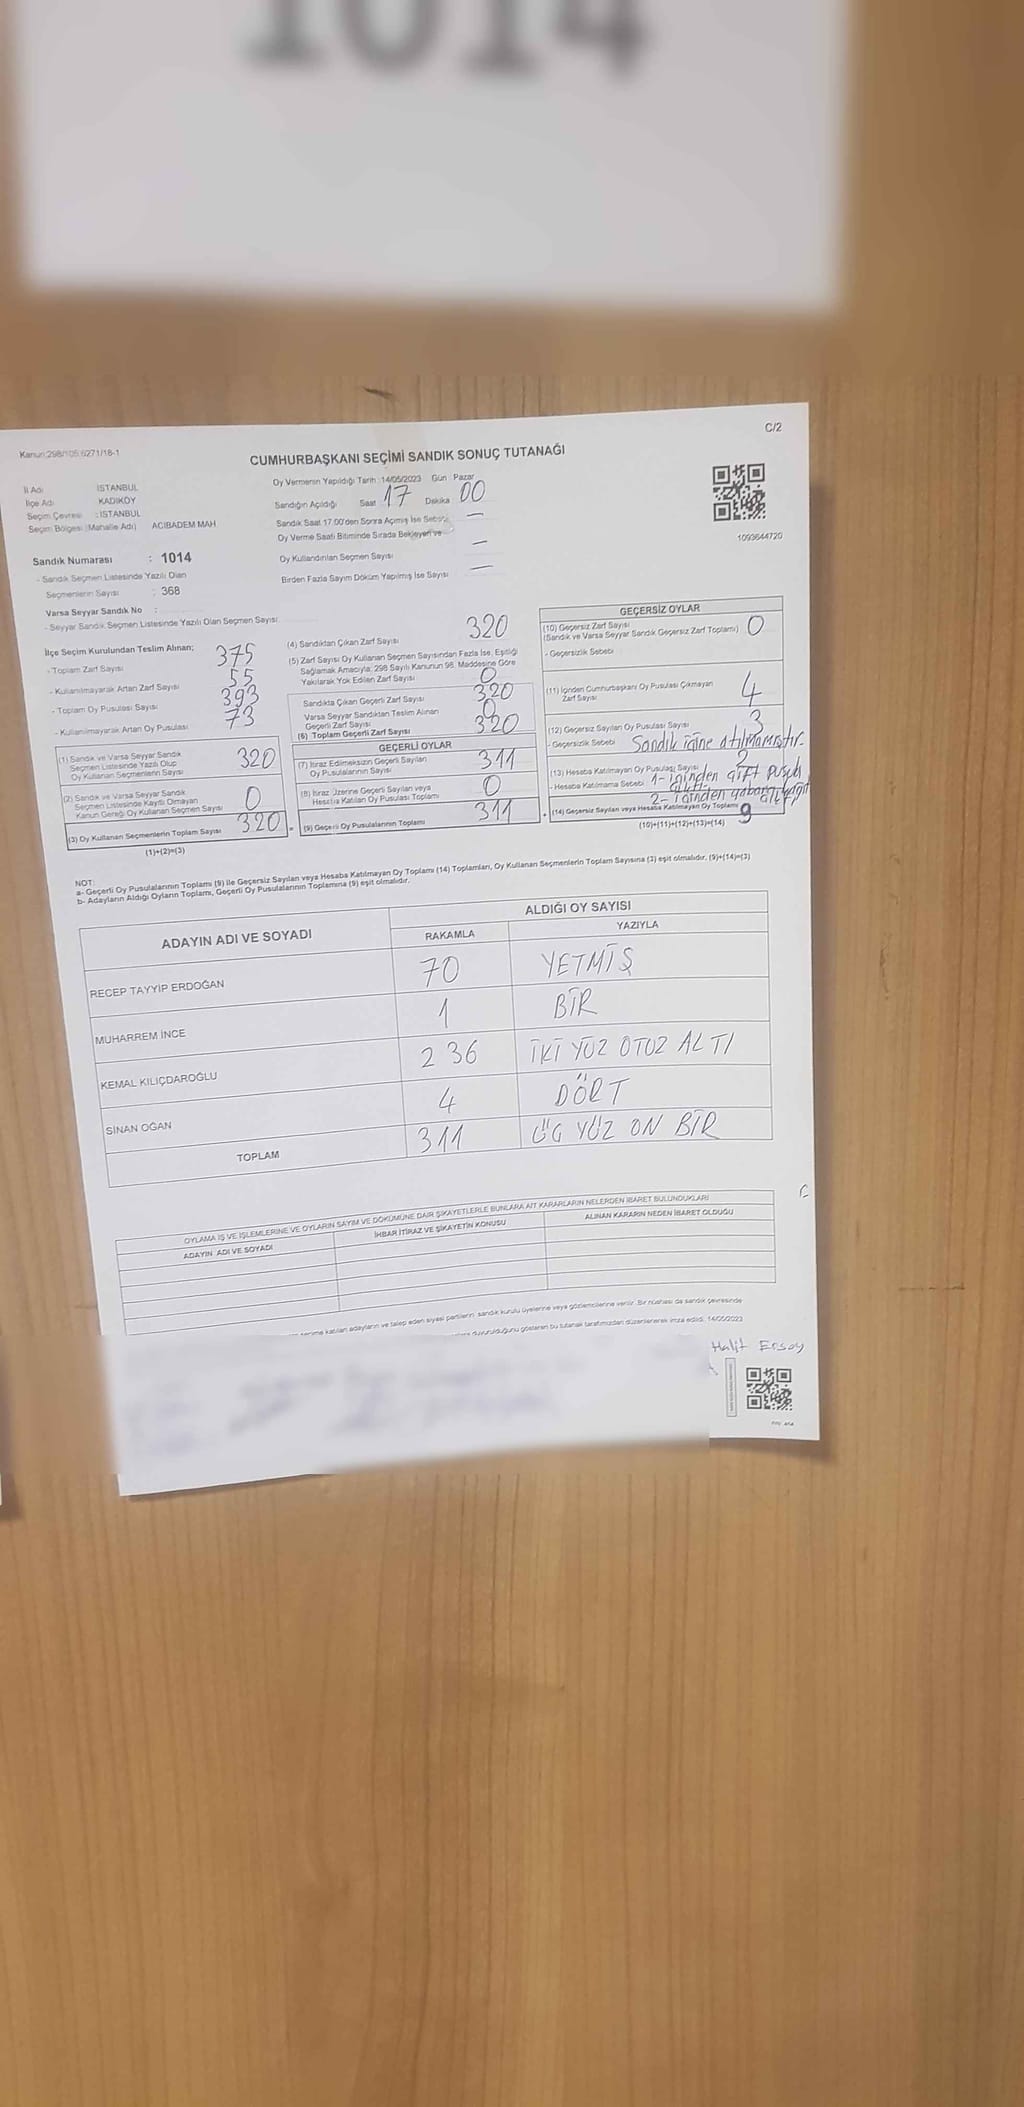 1014
C/2
Kanun:298/105:6271/18-1
CUMHURBAŞKANI SEÇİMİ SANDIK SONUÇ TUTANAĞI
İl Adı İSTANBUL
İlçe Adı KADIKÖY
Seçim Çevresi : İSTANBUL
Seçim Bölgesi (Mahalle Adı) ACIBADEM MAH
Sandık Numarası : 1014
- Sandık Seçmen Listesinde Yazılı Olan
Seçmenlerin Sayısı : 368
Varsa Seyyar Sandık No :
- Seyyar Sandık Seçmen Listesinde Yazılı Olan Seçmen Sayısı
Oy Vermenin Yapıldığı Tarih : 14/05/2023 Gün : Pazar
Sandığın Açıldığı Saat 17 Dakika 00
Sandık Saat 17:00'den Sonra Açımış İse Sebebi —
Oy Verme Saati Bitiminde Sırada Bekleyen ve
Oy Kullandırılan Seçmen Sayısı —
Birden Fazla Sayım Döküm Yapılmış İse Sayısı —
1093644720
İlçe Seçim Kurulundan Teslim Alınan;
- Toplam Zarf Sayısı 375
- Kullanılmayarak Artan Zarf Sayısı 55
- Toplam Oy Pusulası Sayısı 393
- Kullanılmayarak Artan Oy Pusulası 73
(1) Sandık ve Varsa Seyyar Sandık
Seçmen Listesinde Yazılı Olup
Oy Kullanan Seçmenlerin Sayısı 320
(2) Sandık ve Varsa Seyyar Sandık
Seçmen Listesinde Kayıtlı Olmayan
Kanun Gereği Oy Kullanan Seçmen Sayısı 0
(3) Oy Kullanan Seçmenlerin Toplam Sayısı 320
(1)+(2)=(3)
(4) Sandıktan Çıkan Zarf Sayısı 320
(5) Zarf Sayısı Oy Kullanan Seçmen Sayısından Fazla İse, Eşitliği
Sağlamak Amacıyla, 298 Sayılı Kanunun 98. Maddesine Göre
Yakılarak Yok Edilen Zarf Sayısı 0
Sandıkta Çıkan Geçerli Zarf Sayısı 320
Varsa Seyyar Sandıktan Teslim Alınan
Geçerli Zarf Sayısı 0
(6) Toplam Geçerli Zarf Sayısı 320
GEÇERLİ OYLAR
(7) İtiraz Edilmeksizin Geçerli Sayılan
Oy Pusulalarının Sayısı 311
(8) İtiraz Üzerine Geçerli Sayılan veya
Hesaba Katılan Oy Pusulası Toplamı 0
= (9) Geçerli Oy Pusulalarının Toplamı 311
GEÇERSİZ OYLAR
(10) Geçersiz Zarf Sayısı
(Sandık ve Varsa Seyyar Sandık Geçersiz Zarf Toplamı) 0
- Geçersizlik Sebebi
(11) İçinden Cumhurbaşkanı Oy Pusulası Çıkmayan
Zarf Sayısı 4
(12) Geçersiz Sayılan Oy Pusulası Sayısı 3
- Geçersizlik Sebebi Sandık içine atılmamıştır.
(13) Hesaba Katılmayan Oy Pusulası Sayısı 2
- Hesaba Katılmama Sebebi 1- içinden çift pusula
2- içinden yabancı
+ (14) Geçersiz Sayılan veya Hesaba Katılmayan Oy Toplamı 9
(10)+(11)+(12)+(13)=(14)
NOT:
a- Geçerli Oy Pusulalarının Toplamı (9) ile Geçersiz Sayılan veya Hesaba Katılmayan Oy Toplamı (14) Toplamları, Oy Kullanan Seçmenlerin Toplam Sayısına (3) eşit olmalıdır. (9)+(14)=(3)
b- Adayların Aldığı Oyların Toplamı, Geçerli Oy Pusulalarının Toplamına (9) eşit olmalıdır.
ADAYIN ADI VE SOYADI ALDIĞI OY SAYISI
RAKAMLA YAZIYLA
RECEP TAYYIP ERDOĞAN 70 YETMİŞ
MUHARREM İNCE 1 BİR
KEMAL KILIÇDAROĞLU 236 İKİ YÜZ OTUZ ALTI
SİNAN OĞAN 4 DÖRT
TOPLAM 311 ÜÇ YÜZ ON BİR
OYLAMA İŞ VE İŞLEMLERİNE VE OYLARIN SAYIM VE DÖKÜMÜNE DAİR ŞİKAYETLERLE BUNLARA AİT KARARLARIN NELERDEN İBARET BULUNDUKLARI
ADAYIN ADI VE SOYADI İHBAR İTİRAZ VE ŞİKAYETİN KONUSU ALINAN KARARIN NEDEN İBARET OLDUĞU
seçime katılan adayların ve talep eden siyasi partilerin sandık kurulu üyelerine veya gözlemcilerine verilir. Bir nüshası da sandık çevresinde
duyurulduğunu gösteren bu tutanak tarafımızdan düzenlenerek imza edildi. 14/05/2023
Halit Ersoy